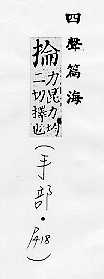 四聲篇海
掄力昆力均
二切擇也
(手部·P418)